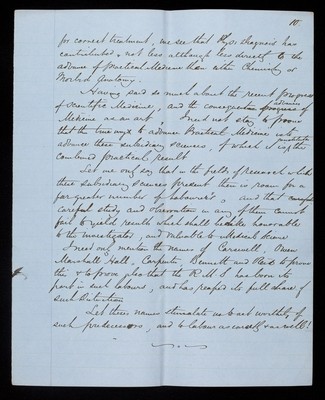 10
for correct treatment, we see that Phys: diagnosis has
contributed, not less although less directly to the
advance of practical Medicine than either Chemistry or
Morbid Anatomy.
Having said so much about the recent progress
of Scientific Medicine, and the consequent advance of
Medicine as an art, I need not stay to prove
that the true way to advance Practical Medicine is to
advance these subsidiary sciences, of which it is the
combined practical result
Let me only say that in the fields of research which
these subsidiary sciences present there is room for a
far greater number of labourers, and that
careful study and observation in any of them cannot
fail to yield results which shall be alike honorable
to the investigator, and valuable to Medical Science
I need only mention the names of Carswell, Owen
Marshall Hall, Carpenter, Bennett and Reid to prove
this & to prove also that the R.M.S. has borne its
part in such labours, and has reaped its full share of
such distinction
Let these names stimulate us to act worthily of
such predecessors, and to labour as earnestly & as well!